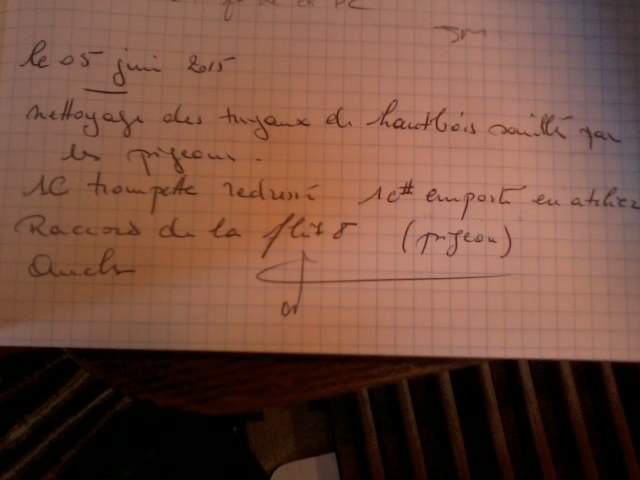 de la PC
JM
le 05 juin 2015
nettoyage des tuyaux de hautbois souillé par
les pigeons.
1C trompette redressé 1C# emporté en atelier
Raccord de la flûte 8 (pigeon)